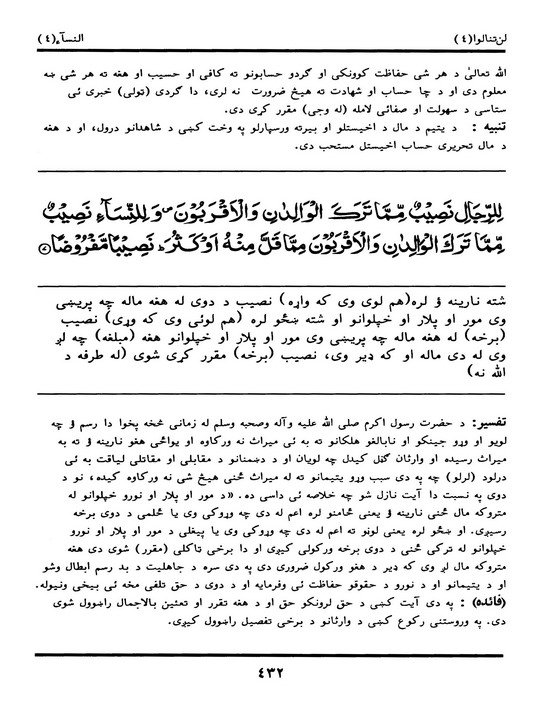 لن تنالوا(٤)
النسآء(٤)
الله تعالیٰ د هر شی حفاظت کوونکی او گردو حسابونو ته کافی او حسیب او هغه ته هر شی ښه
معلوم دی او د چا حساب او شهادت ته هیڅ ضرورت نه لری، دا گردی (ټولی) خبری ئی
ستاسی د سهولت او صفائی لامله (له وجی) مقرر کړی دی.
تنبیه : د یتیم د مال د اخیستلو او بیرته ورسپارلو په وخت کښی د شاهدانو درول، او د هغه
د مال تحریری حساب اخیستل مستحب دی.
لِلرِّجَالِ نَصِيْبٌ مِّمَّا تَرَكَ الْوَالِدٰنِ وَالْاَقْرَبُوْنَ ۪ وَلِلنِّسَآءِ نَصِيْبٌ
مِّمَّا تَرَكَ الْوَالِدٰنِ وَالْاَقْرَبُوْنَ مِمَّا قَلَّ مِنْهُ اَوْ كَثُرَ ؕ نَصِيْبًا مَّفْرُوْضًا ﴿۷﴾
شته نارینه ؤ لره(هم لوی وی که واړه) نصیب د دوی له هغه ماله چه پریښی
وی مور او پلار او خپلوانو او شته ښځو لره (هم لوئی وی که وړی) نصیب
(برخه) له هغه ماله چه پریښی وی مور او پلار او خپلوانو هغه (مبلغه) چه لږ
وی له دی ماله او که ډیر وی، نصیب (برخه) مقرر کړی شوی (له طرفه د
الله نه)
تفسیر: د حضرت رسول اکرم صلی الله علیه وآله وصحبه وسلم له زمانی څخه پخوا دا رسم ؤ چه
لویو او وړو جینکو او نابالغو هلکانو ته به ئی میراث نه ورکاوه او یواځی هغو نارینه ؤ ته به
میراث رسیده او وارثان گڼل کیدل چه لویان او د دښمنانو د مقابلی او مقاتلی لیاقت به ئی
درلود (لرلو) چه په دی سبب وړو یتیمانو ته له میراث څنی هیڅ شی نه ورکاوه کیده، نو د
دوی په نسبت دا آیت نازل شو چه خلاصه ئی داسی ده. «د مور او پلار او نورو خپلوانو له
متروکه مال څنی نارینه ؤ یعنی ځامنو لره اعم له دی چه وړوکی وی یا ځلمی د دوی برخه
رسیږی. او ښځو لره یعنی لوڼو ته اعم له دی چه وړوکی وی یا پیغلی د مور او پلار او نورو
خپلوانو له ترکی څنی د دوی برخه ورکولی کیږی او دا برخی ټاکلی (مقرر) شوی دی هغه
متروکه مال لږ وی که ډیر د هغو ورکول ضروری دی په دی سره د جاهلیت د بد رسم ابطال وشو
او د یتیمانو او د نورو د حقوقو حفاظت ئی وفرمایه او د دوی د حق تلفی مخه ئی بیخی ونیوله.
(فائده) : په دی آیت کښی د حق لرونکو حق او د هغه تقرر او تعیین بالاجمال راوول شوی
دی. په وروستنی رکوع کښی د وارثانو د برخی تفصیل راوول کیږی.
٤٣٢